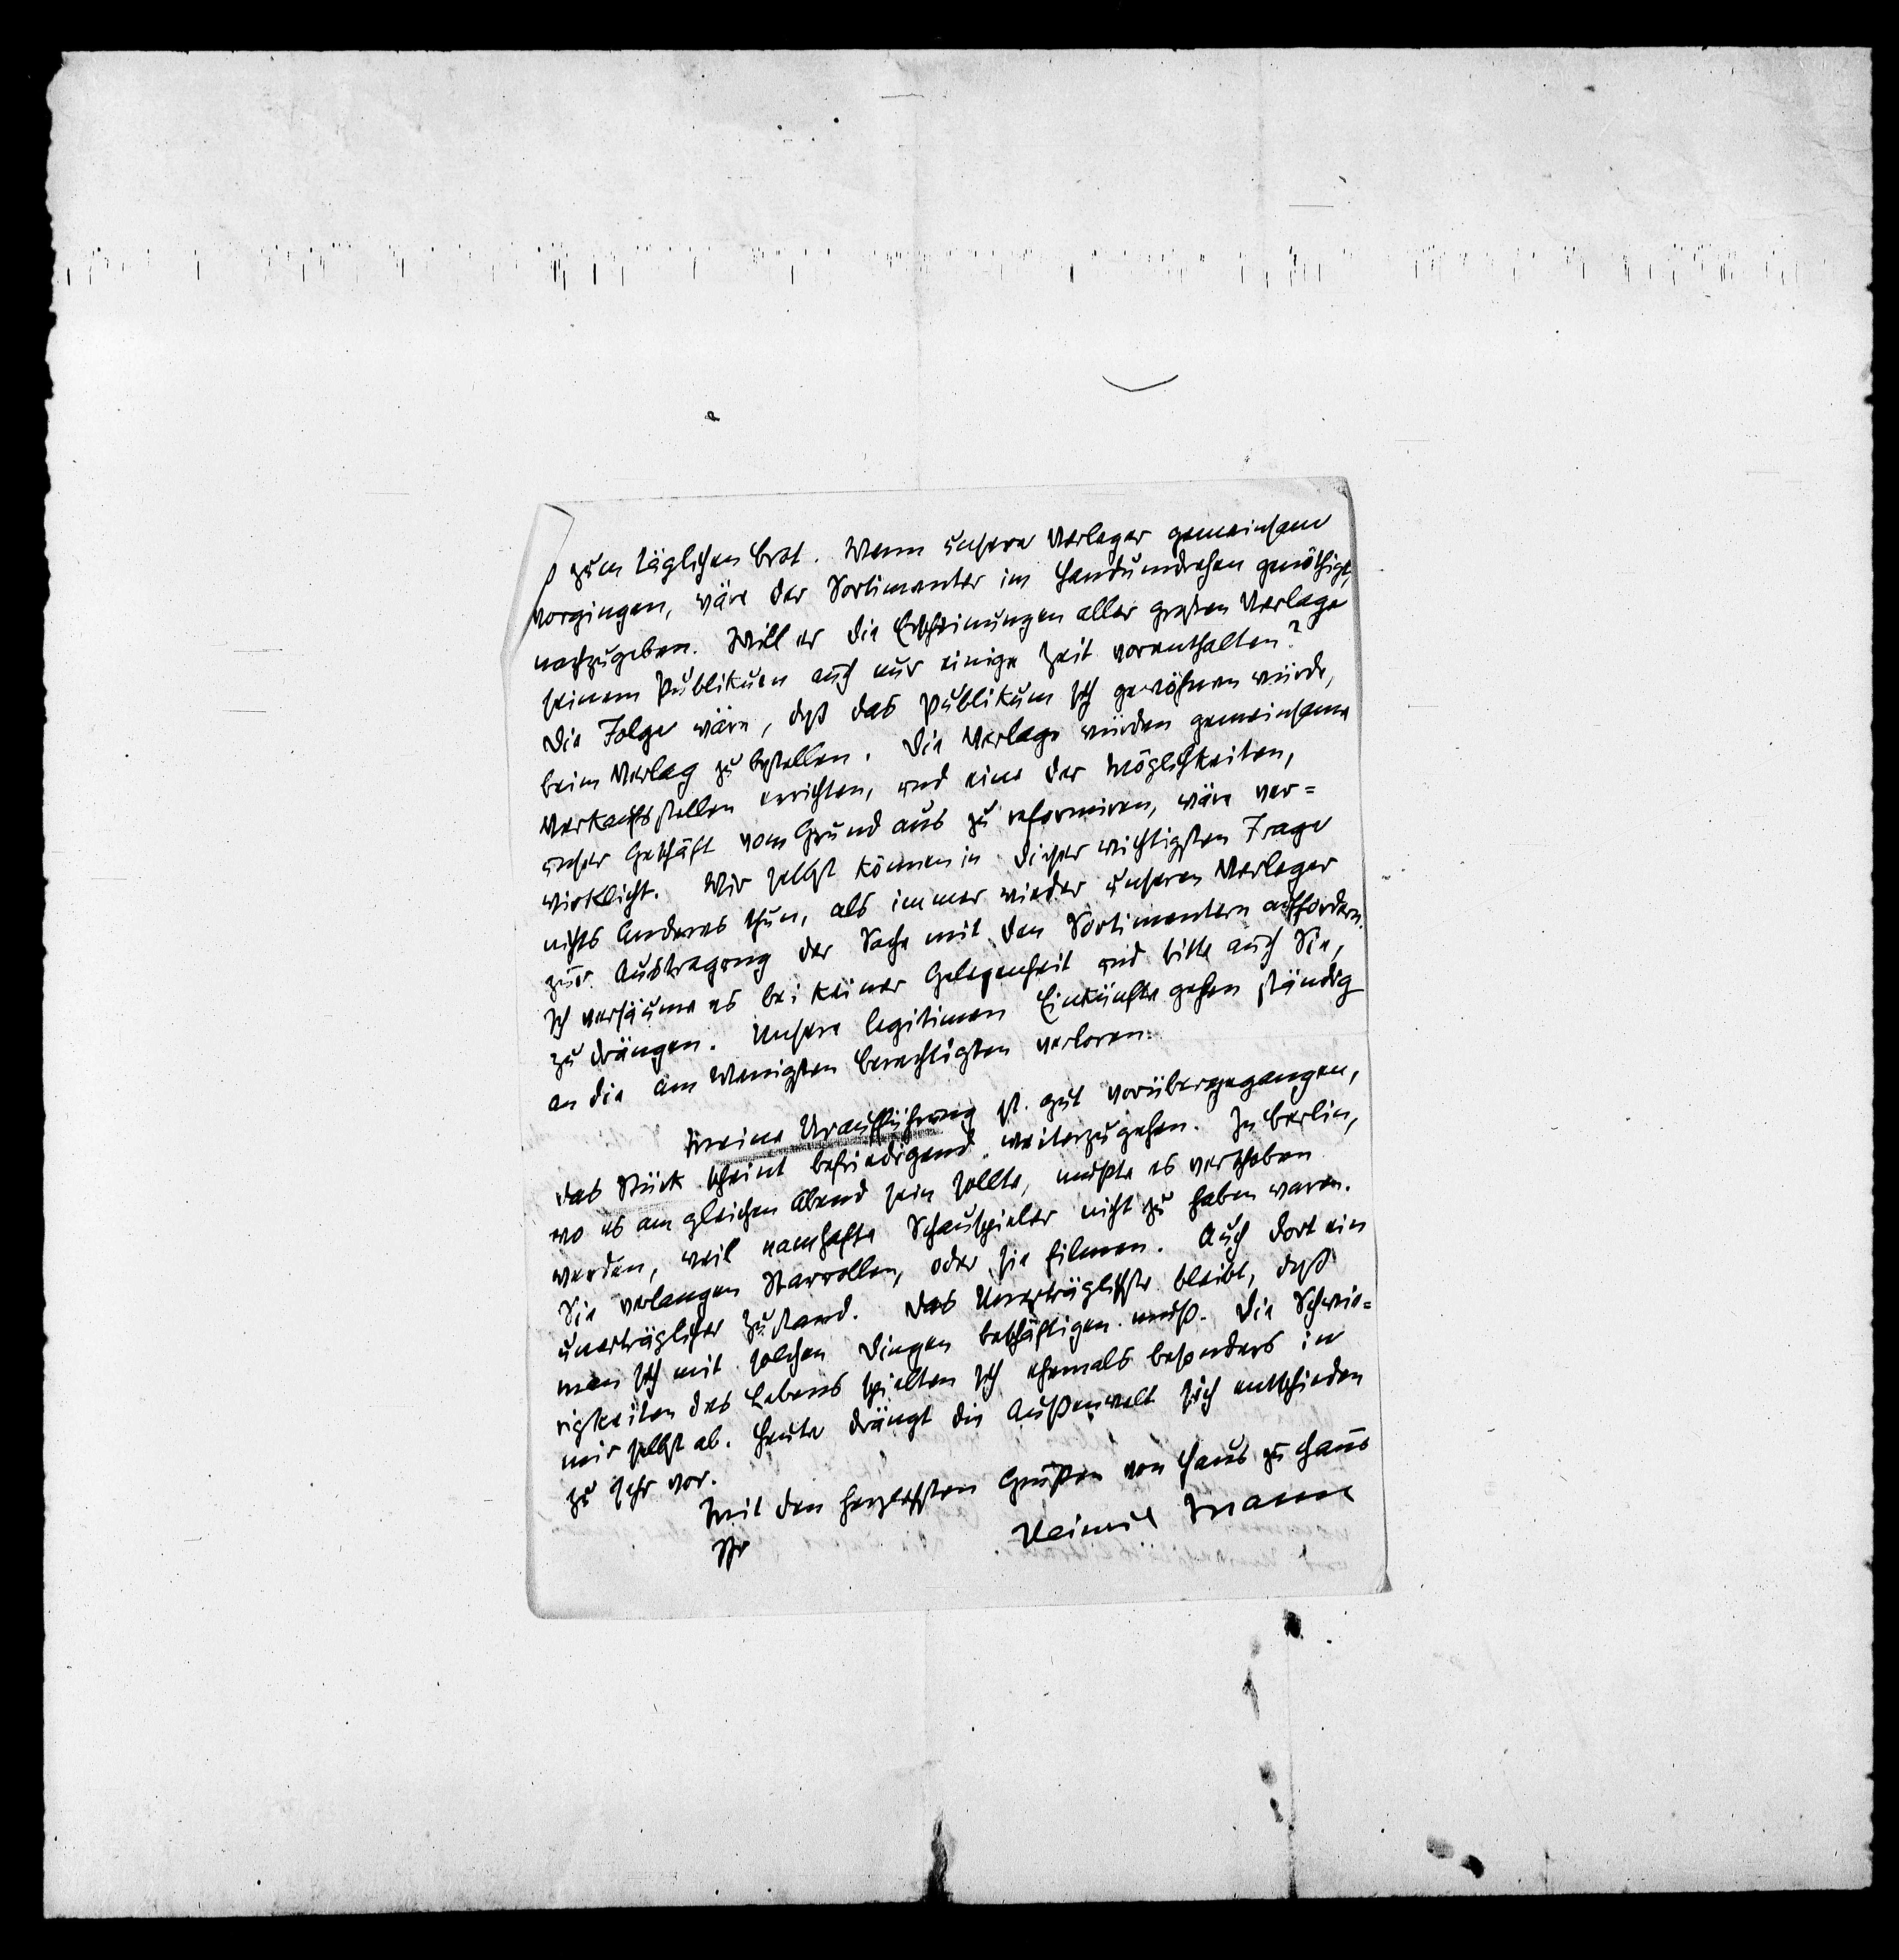 zum täglichen Brot. Wenn unsere Verleger gemeinsam
vorgingen, wäre der Sortimenter im Handumdrehen genöthigt,
nachzugeben. Will er die Erscheinungen aller großen Verlage
seinem Publikum auch nur einige Zeit vorenthalten?
Die Folge wäre, daß das Publikum sich gewöhnen würde,
beim Verlag zu bestellen. Die Verlage würden gemeinsame
Verkaufsstellen errichten, und eine der Möglichkeiten,
unser Geschäft vom Grund aus zu reformiren, wäre ver=
wirklicht. Wir selbst können in dieser wichtigsten Frage
nichts Anderes thun, als immer wieder unseren Verleger
zur Austragung der Sache mit den Sortimentern auffordern.
Ich versäume es bei keiner Gelegenheit und bitte auch Sie,
zu drängen. Unsere legitimen Einkünfte gehen ständig
an die am Wenigsten Berechtigten verloren.
Meine Uraufführung ist gut vorübergegangen,
das Stück scheint befriedigend weiterzugehen. In Berlin,
wo es am gleichen Abend sein sollte, mußte es verschoben
werden, weil namhafte Schauspieler nicht zu haben waren.
Sie verlangen Starrollen, oder sie filmen. Auch dort ein
unerträglicher Zustand. Das Unerträglichste bleibt, daß
man sich mit solchen Dingen beschäftigen muß. Die Schwie=
rigkeiten des Lebens spielten sich ehemals besonders in
mir selbst ab. Heute drängt die Außenwelt sich entschieden
zu sehr vor.
Mit den herzlichsten Grüßen von Haus zu Haus
Ihr
Heinrich Mann